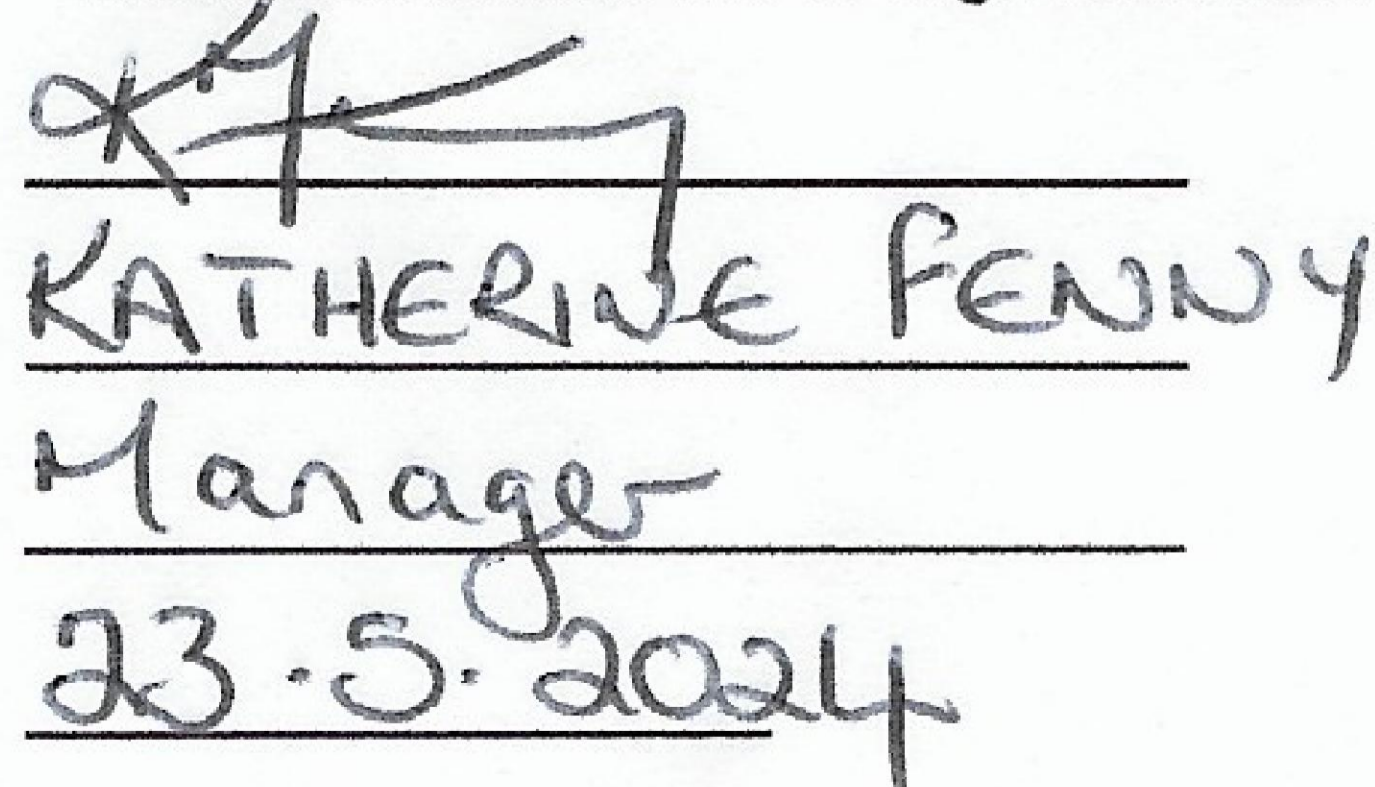 KATHERINE FENNY
Manager
23.5.2024